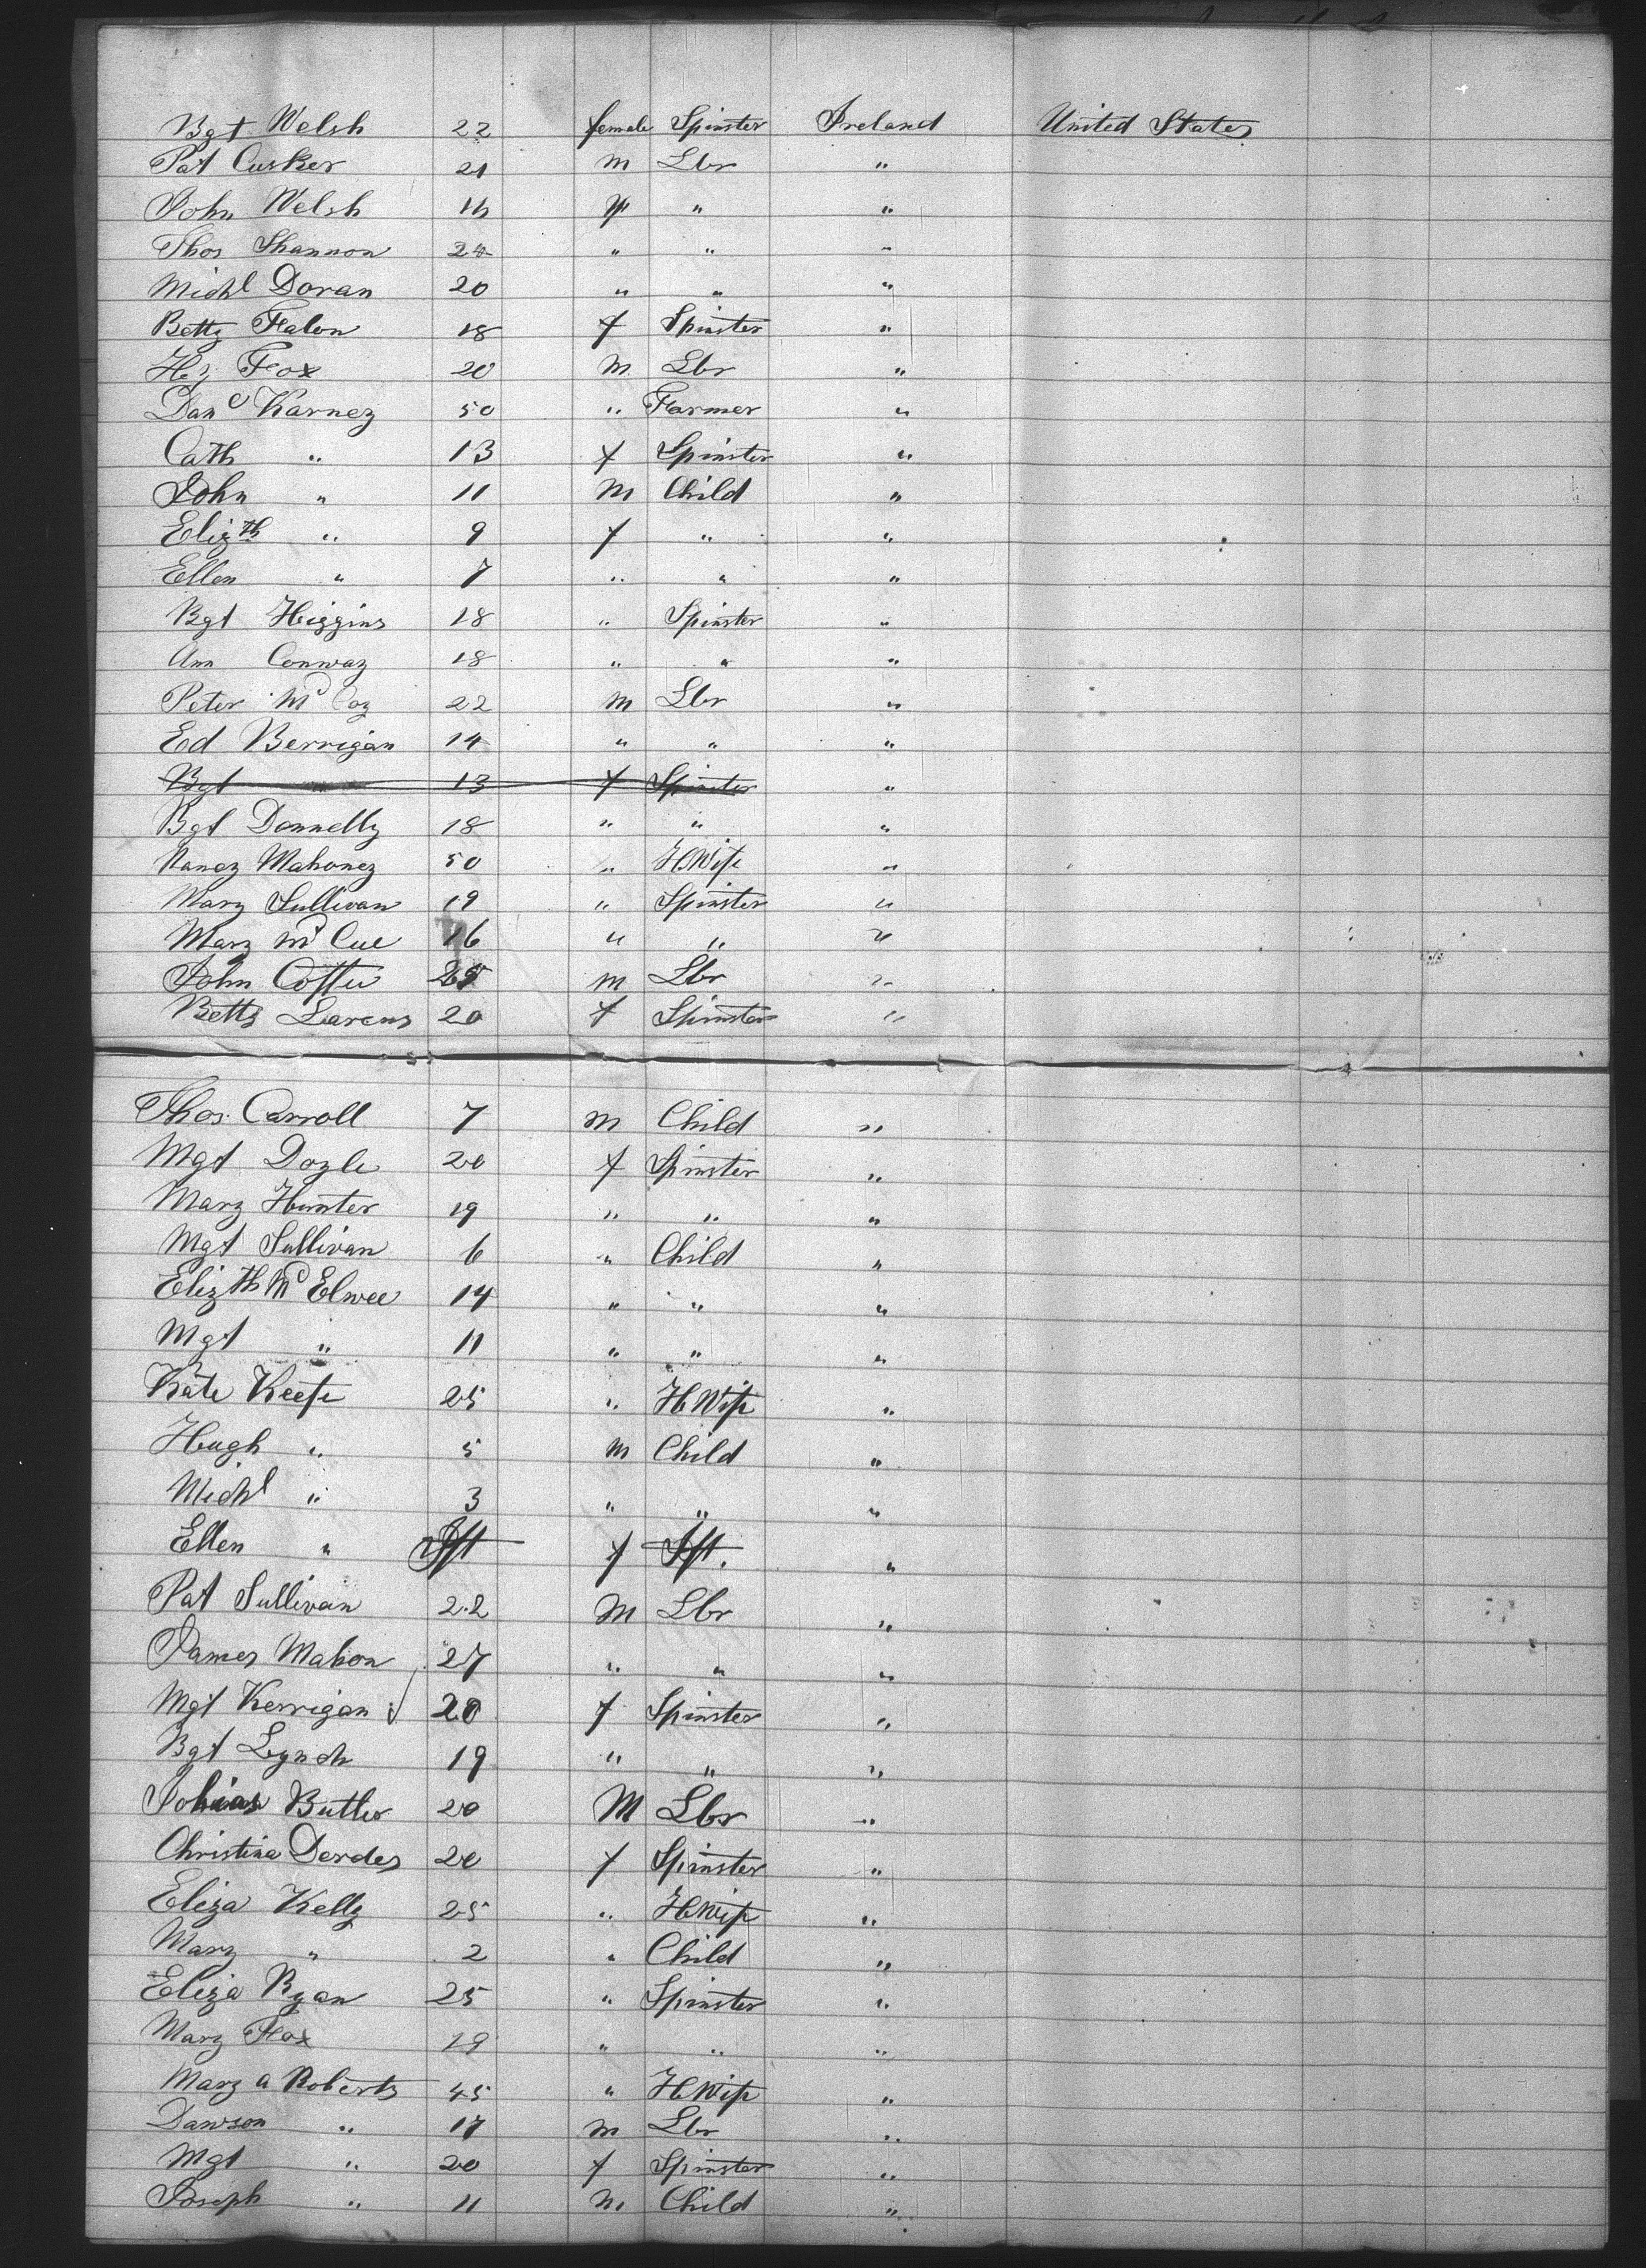 Bgt Welsh 22 female Spinster Ireland United States
Pat Cusker 21 m Lbr "
John Welsh 16 m " "
Thos Shannon 24 " " "
Michl Doran 20 " " "
Betty Falon 18 f Spinster "
Hy Fox 20 m Lbr "
Danl Karney 50 " Farmer "
Cath " 13 f Spinster "
John " 11 m Child "
Elizth " 9 f " "
Ellen " 7 " " "
Bgt Higgins 18 " Spinster "
Ann Conway 18 " " "
Peter McCoy 22 m Lbr "
Ed Berrigan 14 " " "
Bgt " 13 f Spinster "
Bgt Donnelly 18 " " "
Nancy Mahoney 50 " HWife "
Mary Sullivan 19 " Spinster "
Mary McCue 16 " " "
John 25 m Lbr "
Betty 20 f Spinster "
Thos. Carroll 7 m Child "
Mgt Doyle 20 f Spinster "
Mary Hunter 19 " " "
Mgt Sullivan 6 " Child "
Elizth McElwee 14 " " "
Mgt " 11 " " "
Kate Keefe 25 " HWife "
Hugh " 5 m Child "
Michl " 3 " " "
Ellen " Ift f Ift. "
Pat Sullivan 22 m Lbr "
James Mahon 27 " " "
Mgt Kerrigan 20 f Spinster "
Bgt Lynch 19 " " "
Butler 20 M Lbr "
Christina 20 f Spinster "
Eliza Kelly 25 " HWife "
Mary " 2 " Child "
Eliza Ryan 25 " Spinster "
Mary Fox 19 " " "
Mary A Roberts 45 " HWife "
Dawson " 17 m Lbr "
Mgt " 20 f Spinster "
Joseph " 11 m Child "